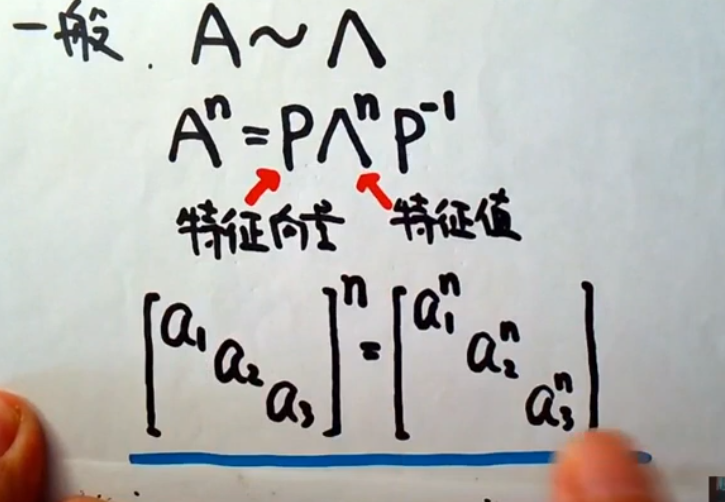 一般. A ~ Λ
Aⁿ = P Λⁿ P⁻¹
特征向量 特征值
[a₁ a₂ a₃]ⁿ = [a₁ⁿ a₂ⁿ a₃ⁿ]